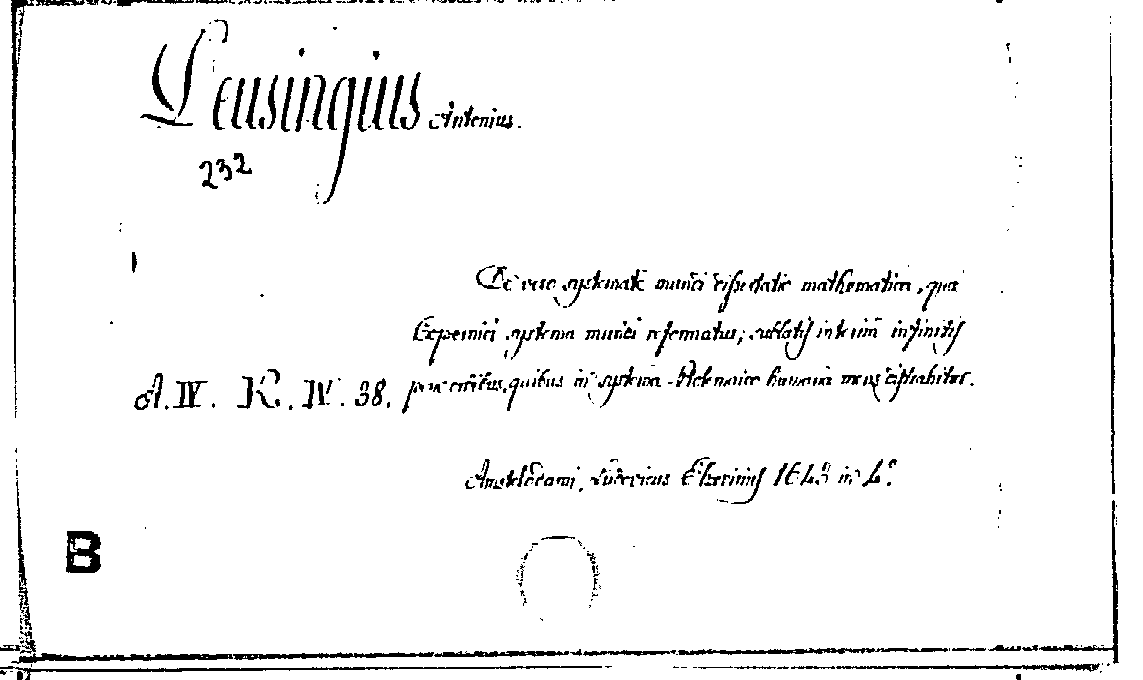 Deusingius Antonius.
232
De vero systemate mundi dissertatio mathematica, qua
Copernici systema mundi reformatur, sublatis interim infinitis
A. IV. K. IV. 38. quibus in systema Ptolemaico humana mens distrahitur.
Amstelodami, Ludovicus Elzevirius 1643 in 4º.
B